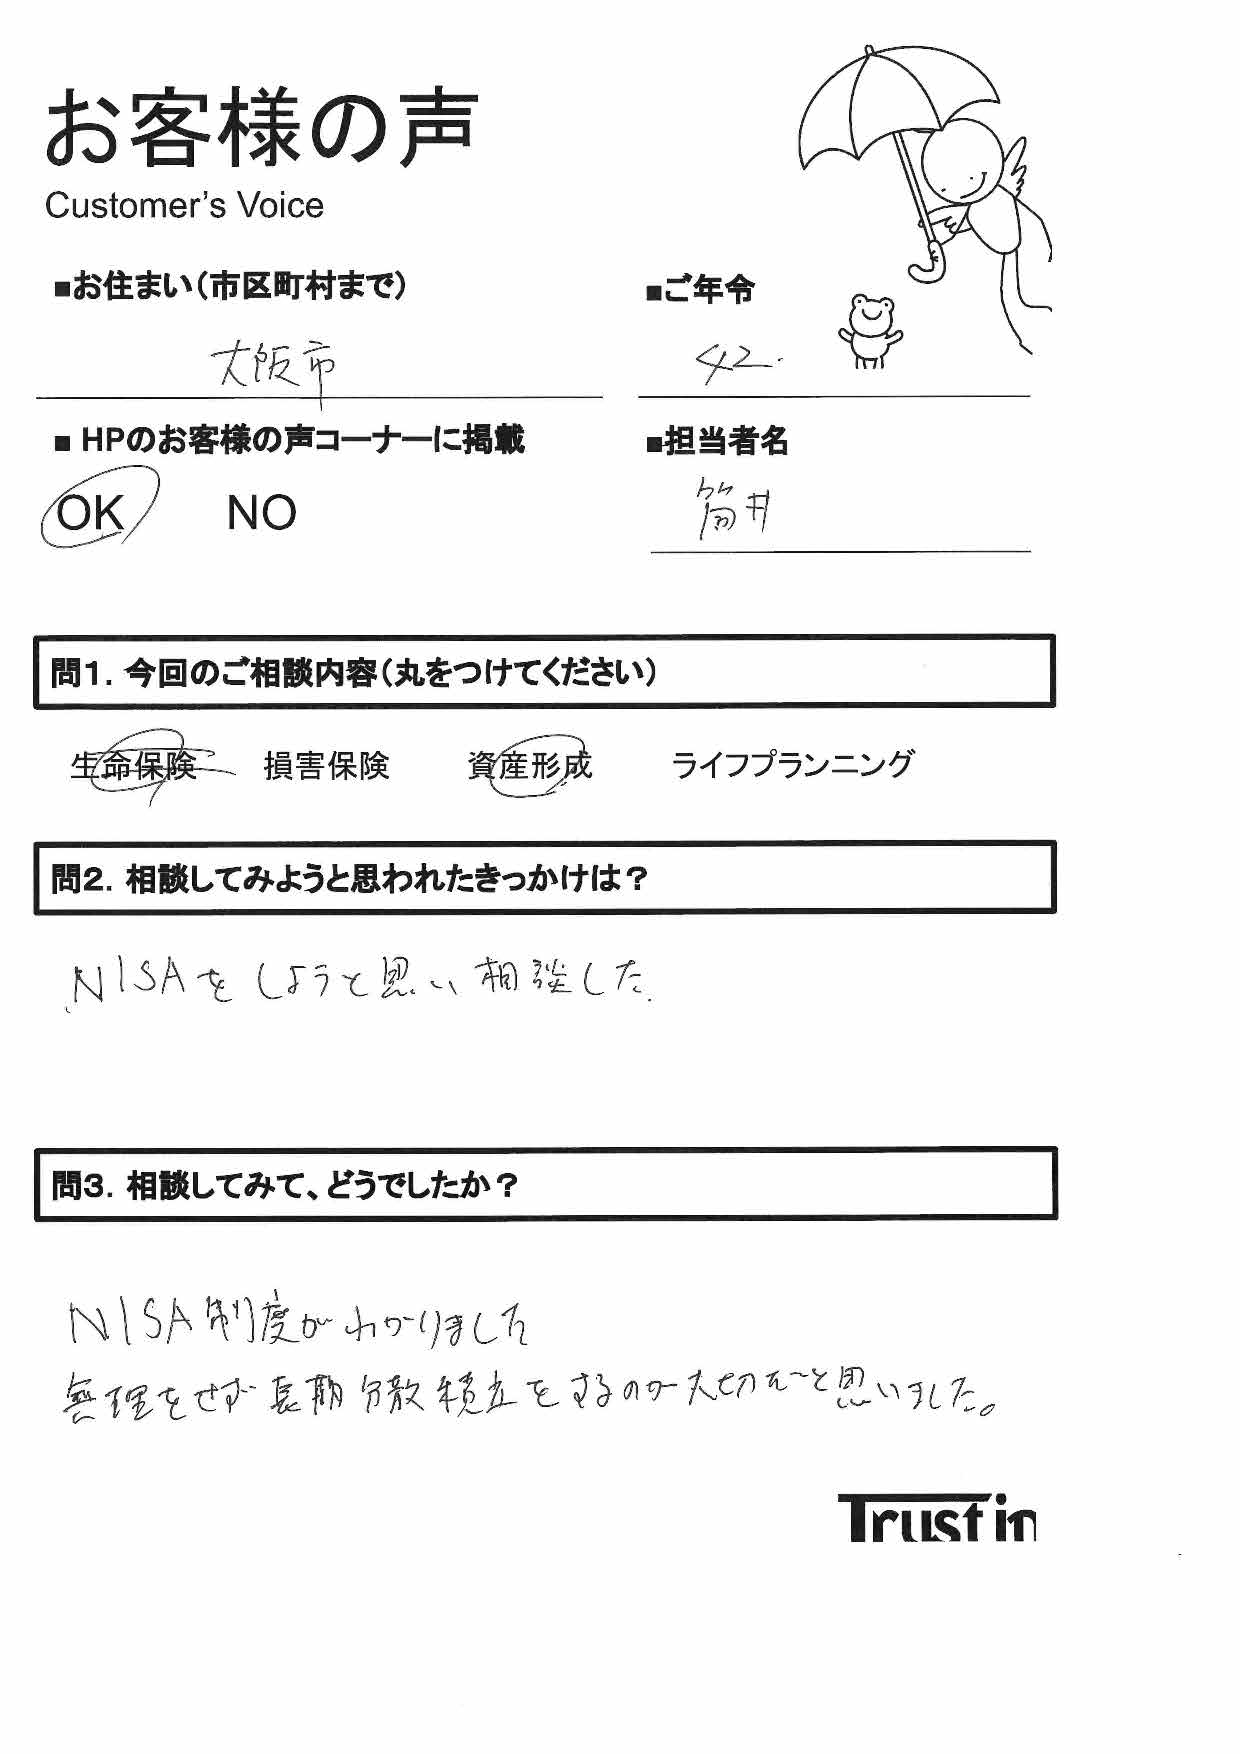 お客様の声
Customer's Voice
■お住まい(市区町村まで)
■ご年令
大阪市
42.
■ HPのお客様の声コーナーに掲載
■担当者名
OK NO
筒井
問1. 今回のご相談内容(丸をつけてください)
生命保険 損害保険 資産形成 ライフプランニング
問2. 相談してみようと思われたきっかけは?
NISAをしようと思い相談した.
問3. 相談してみて、どうでしたか?
NISA制度がわかりました
無理をせず長期分散積立をするのが大切だと思いました。
Trust in